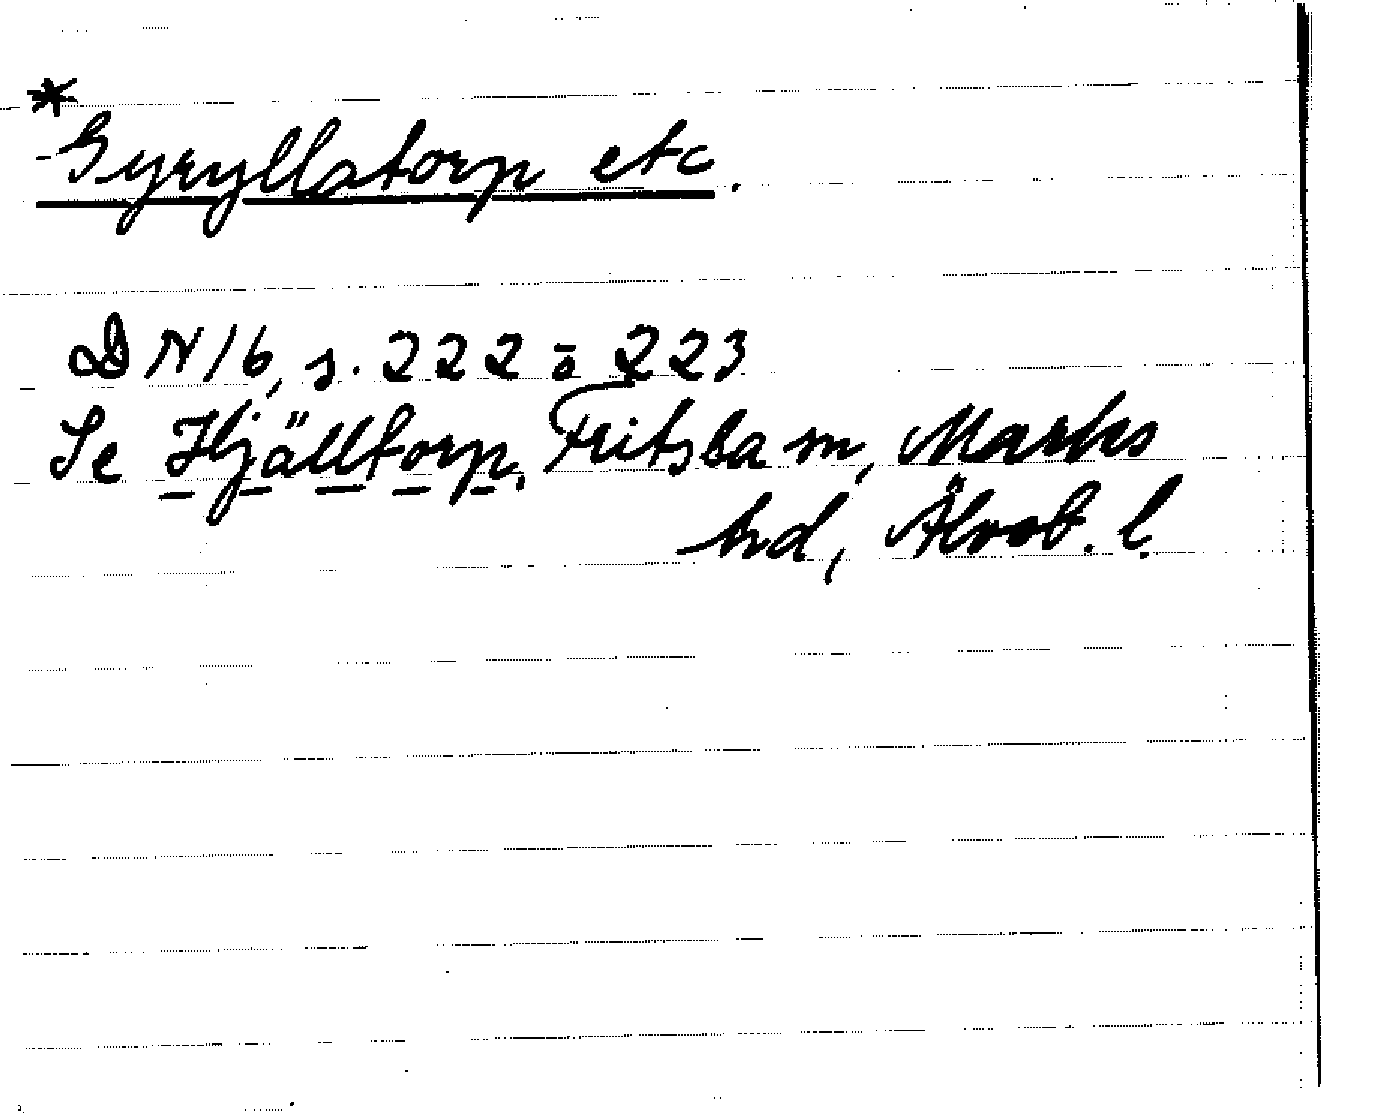 * Gyryllatorp etc.
DN 16, s. 222 o 223
Se Hjälltorp, Fritsla sn, Marks
hd, Älvsb. l.